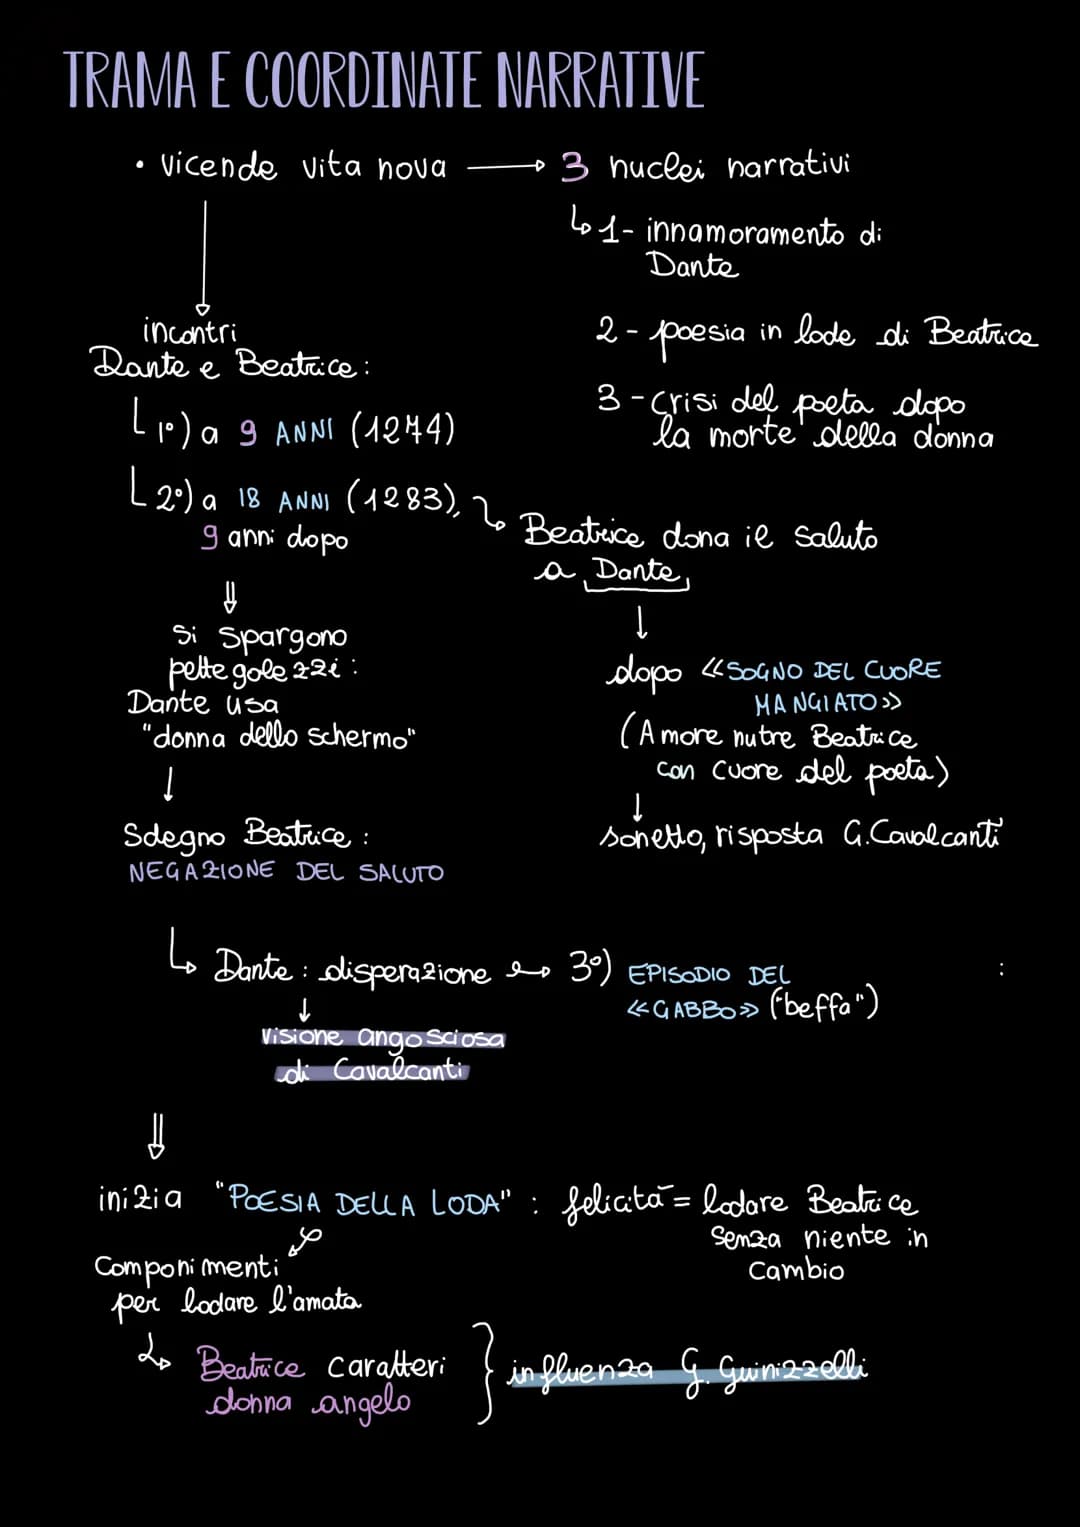 TRAMA E COORDINATE NARRATIVE
• vicende vita nova → 3 nuclei narrativi
↳ 1- innamoramento di
Dante
2 - poesia in lode di Beatrice
3 - crisi del poeta dopo
la morte della donna
incontri
Dante e Beatrice:
1°) a 9 ANNI (1274)
2°) a 18 ANNI (1283),
9 anni dopo
Beatrice dona il saluto
a Dante
↓
dopo «SOGNO DEL CUORE
MANGIATO»
(Amore nutre Beatrice
con cuore del poeta)
↓
sonetto, risposta G. Cavalcanti
⇓
si spargono
pettegolezzi:
Dante usa
"donna dello schermo"
↓
Sdegno Beatrice:
NEGAZIONE DEL SALUTO
↳ Dante: disperazione → 3°) EPISODIO DEL
«GABBO» ("beffa")
:
↓
visione angosciosa
di Cavalcanti
⇓
inizia "POESIA DELLA LODA" : felicità = lodare Beatrice
senza niente in
cambio
Componimenti
per lodare l'amata
↳ Beatrice caratteri
donna angelo
} influenza G. Guinizzelli